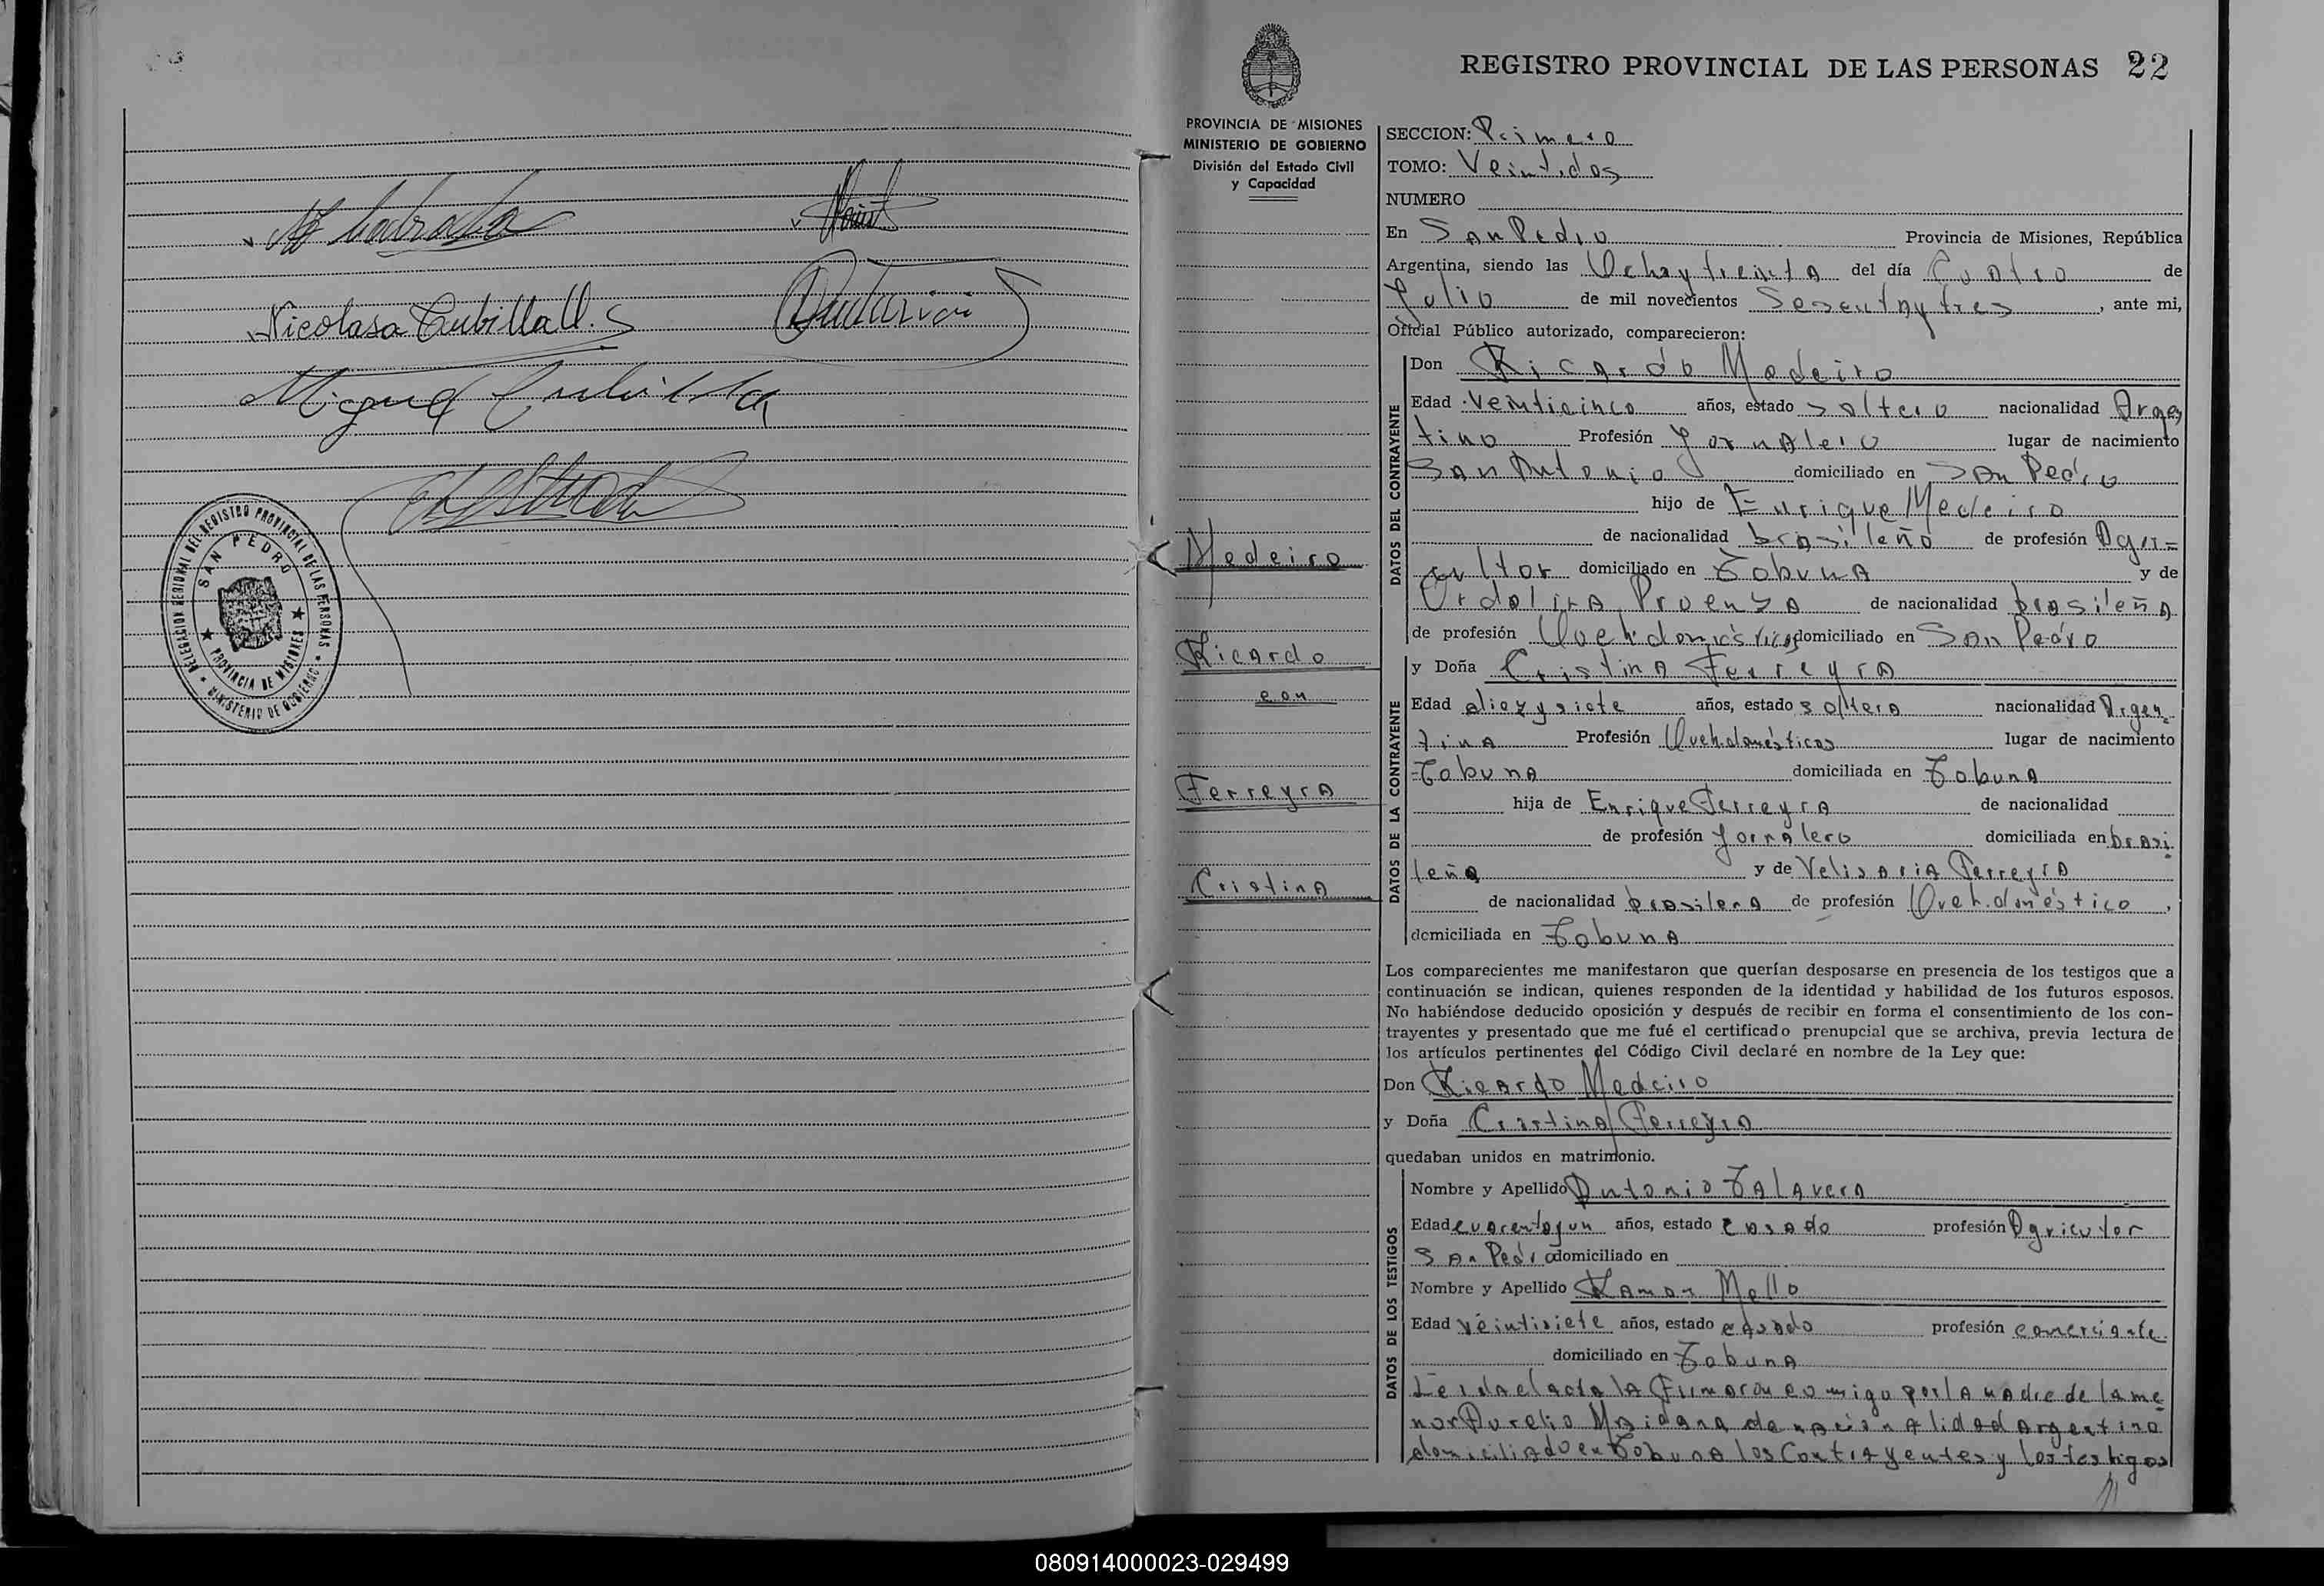 Nicolasa Cubilla U.
Miguel Cubilla
DELEGACION REGIONAL DEL REGISTRO PROVINCIAL DE LAS PERSONAS
SAN PEDRO
PROVINCIA DE MISIONES
MINISTERIO DE GOBIERNO
REGISTRO PROVINCIAL DE LAS PERSONAS 22
PROVINCIA DE MISIONES
MINISTERIO DE GOBIERNO
División del Estado Civil
y Capacidad
Medeiro
Ricardo
con
Ferreyra
Cristina
SECCION: Primero
TOMO: Veintidos
NUMERO
En San Pedro Provincia de Misiones, República
Argentina, siendo las Ochaytreinta del día Cuatro de
Julio de mil novecientos Sesentaytres, ante mi,
Oficial Público autorizado, comparecieron:
DATOS DEL CONTRAYENTE
Don Ricardo Medeiro
Edad Veinticinco años, estado soltero nacionalidad Argen
tino Profesión Jornalero lugar de nacimiento
San Antonio domiciliado en San Pedro
hijo de Enrique Medeiro
de nacionalidad brasileño de profesión Agri=
cultor domiciliado en Tobuna y de
Proenza de nacionalidad brasileña
de profesión Queh. domésticos domiciliado en San Pedro
DATOS DE LA CONTRAYENTE
y Doña Cristina Ferreyra
Edad diezysiete años, estado soltera nacionalidad Argen
tina Profesión Queh. domésticos lugar de nacimiento
Tobuna domiciliada en Tobuna
hija de Enrique Ferreyra de nacionalidad
de profesión Jornalero domiciliada en brasi
leña y de Velisaria Ferreyra
de nacionalidad brasilera de profesión Queh. doméstico,
domiciliada en Tobuna
Los comparecientes me manifestaron que querían desposarse en presencia de los testigos que a
continuación se indican, quienes responden de la identidad y habilidad de los futuros esposos.
No habiéndose deducido oposición y después de recibir en forma el consentimiento de los con-
trayentes y presentado que me fué el certificado prenupcial que se archiva, previa lectura de
los artículos pertinentes del Código Civil declaré en nombre de la Ley que:
Don Ricardo Medeiro
y Doña Cristina Ferreyra
quedaban unidos en matrimonio.
DATOS DE LOS TESTIGOS
Nombre y Apellido Antonio Talavera
Edad cuarentayun años, estado casado profesión Agricutor
San Pedro domiciliado en
Nombre y Apellido Ramon Mello
Edad veintisiete años, estado casado profesión comerciante
domiciliado en Tobuna
Leida el acta la firmaron conmigo por la madre de la me
nor Aurelio Maidana de nacionalidad argentino
domiciliado en Tobuna los Contrayentes y los testigos
080914000023-029499